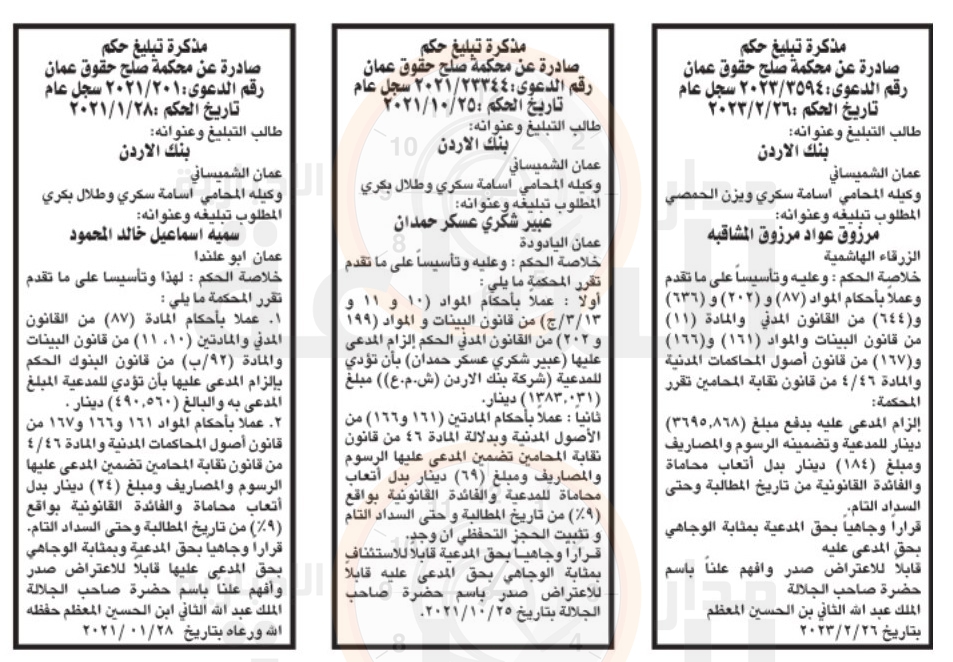 مذكرة تبليغ حكم
صادرة عن محكمة صلح حقوق عمان
رقم الدعوى:٢٠٢٣/٣٥٩٤ سجل عام
تاريخ الحكم :٢٠٢٣/٢/٢٦
طالب التبليغ وعنوانه:
بنك الاردن
عمان الشميساني
وكيله المحامي اسامة سكري ويزن الحمصي
المطلوب تبليغه وعنوانه:
مرزوق عواد مرزوق المشاقبه
الزرقاء الهاشمية
خلاصة الحكم : وعليه وتأسيساً على ما تقدم
وعملاً بأحكام المواد (٨٧) و (٢٠٢) و (٦٣٦)
و(٦٤٤) من القانون المدني والمادة (١١)
من قانون البينات والمواد (١٦١) و(١٦٦)
و(١٦٧) من قانون أصول المحاكمات المدنية
والمادة ٤/٤٦ من قانون نقابة المحامين تقرر
المحكمة:
إلزام المدعى عليه بدفع مبلغ (٣٦٩٥,٨٦٨)
دينار للمدعية وتضمينه الرسوم والمصاريف
ومبلغ (١٨٤) دينار بدل أتعاب محاماة
والفائدة القانونية من تاريخ المطالبة وحتى
السداد التام.
قراراً وجاهياً بحق المدعية بمثابة الوجاهي
بحق المدعى عليه
قابلا للاعتراض صدر وافهم علناً باسم
حضرة صاحب الجلالة
الملك عبد الله الثاني بن الحسين المعظم
بتاريخ ٢٠٢٣/٢/٢٦
مذكرة تبليغ حكم
صادرة عن محكمة صلح حقوق عمان
رقم الدعوى:٢٠٢١/٢٣٣٤٤ سجل عام
تاريخ الحكم :٢٠٢١/١٠/٢٥
طالب التبليغ وعنوانه:
بنك الاردن
عمان الشميساني
وكيله المحامي اسامة سكري وطلال بكري
المطلوب تبليغه وعنوانه:
عبير شكري عسكر حمدان
عمان اليادودة
خلاصة الحكم : وعليه وتأسيساً على ما تقدم
تقرر المحكمة ما يلي :
أولا : عملاً بأحكام المواد (١٠ و ١١ و
٣/١٣/ج) من قانون البينات و المواد (١٩٩
و ٢٠٢) من القانون المدني الحكم إلزام المدعى
عليها (عبير شكري عسكر حمدان) بأن تؤدي
للمدعية (شركة بنك الاردن (ش.م.ع)) مبلغ
(١٣٨٣,٠٣١) دينار.
ثانياً : عملاً بأحكام المادتين (١٦١ و١٦٦) من
الأصول المدنية وبدلالة المادة ٤٦ من قانون
نقابة المحامين تضمين المدعى عليها الرسوم
والمصاريف ومبلغ (٦٩) دينار بدل أتعاب
محاماة للمدعية والفائدة القانونية بواقع
(٩٪) من تاريخ المطالبة و حتى السداد التام
و تثبيت الحجز التحفظي ان وجد.
قراراً وجاهياً بحق المدعية قابلاً للاستئناف
بمثابة الوجاهي بحق المدعى عليه قابلاً
للاعتراض صدر باسم حضرة صاحب
الجلالة بتاريخ ٢٠٢١/١٠/٢٥.
مذكرة تبليغ حكم
صادرة عن محكمة صلح حقوق عمان
رقم الدعوى:٢٠٢١/٢٠١ سجل عام
تاريخ الحكم :٢٠٢١/١/٢٨
طالب التبليغ وعنوانه:
بنك الاردن
عمان الشميساني
وكيله المحامي اسامة سكري وطلال بكري
المطلوب تبليغه وعنوانه:
سميه اسماعيل خالد المحمود
عمان ابو علندا
خلاصة الحكم : لهذا وتأسيسا على ما تقدم
تقرر المحكمة ما يلي :
١. عملا بأحكام المادة (٨٧) من القانون
المدني والمادتين (١٠، ١١) من قانون البينات
والمادة (٩٢/ب) من قانون البنوك الحكم
بإلزام المدعى عليها بأن تؤدي للمدعية المبلغ
المدعى به والبالغ (٤٩٠,٥٦٠) دينار .
٢. عملا بأحكام المواد ١٦١ و١٦٦ و١٦٧ من
قانون أصول المحاكمات المدنية والمادة ٤/٤٦
من قانون نقابة المحامين تضمين المدعى عليها
الرسوم والمصاريف ومبلغ (٢٤) دينار بدل
أتعاب محاماة والفائدة القانونية بواقع
(٩٪) من تاريخ المطالبة وحتى السداد التام.
قراراً وجاهيا بحق المدعية وبمثابة الوجاهي
بحق المدعى عليها قابلا للاعتراض صدر
وأفهم علناً باسم حضرة صاحب الجلالة
الملك عبد الله الثاني ابن الحسين المعظم حفظه
الله ورعاه بتاريخ ٢٠٢١/٠١/٢٨